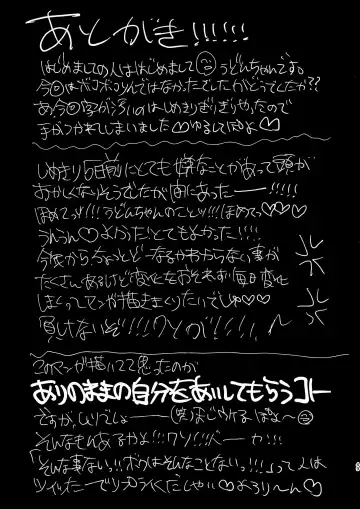 あとがき!!!!!!
はじめましての人ははじめまして うどんちゃんです。
今回はボコボコりんではなかったでしたがどうでしたか??
あ、今回字がきろいのはしめきりぎりぎりやったので
手がつかれてしまいました♡ゆるしてぽよ♡
しめきり6日前にとても嫌なことがあって頭が
おかしくなりそうでしたが間にあったーー!!!!!
ほめてっ!!!うどんちゃんのことッ!!!ほめてっ♡♡♡
うんうん♡よかったとてもよかった!!!!
今後からちょっとどーなるかわからない事が
たくさんあるけど変化をおそれず毎日変化
しまくってマンガ描きまくりたいでしゅ♡♡
負けないぞ!!!!クソが!!!!!
このマンガ描いてて思ったのが
ありのままの自分をあいしてもらうコト
ですが、ムリでしょーー
そんなもんあるかよ!!!クソッ!!バーカ!!!
「そんな事ない!!!ボクはそんなことない!!!」って人は
ツイッターでリプライくだしゃい♡よろりーん♡
8